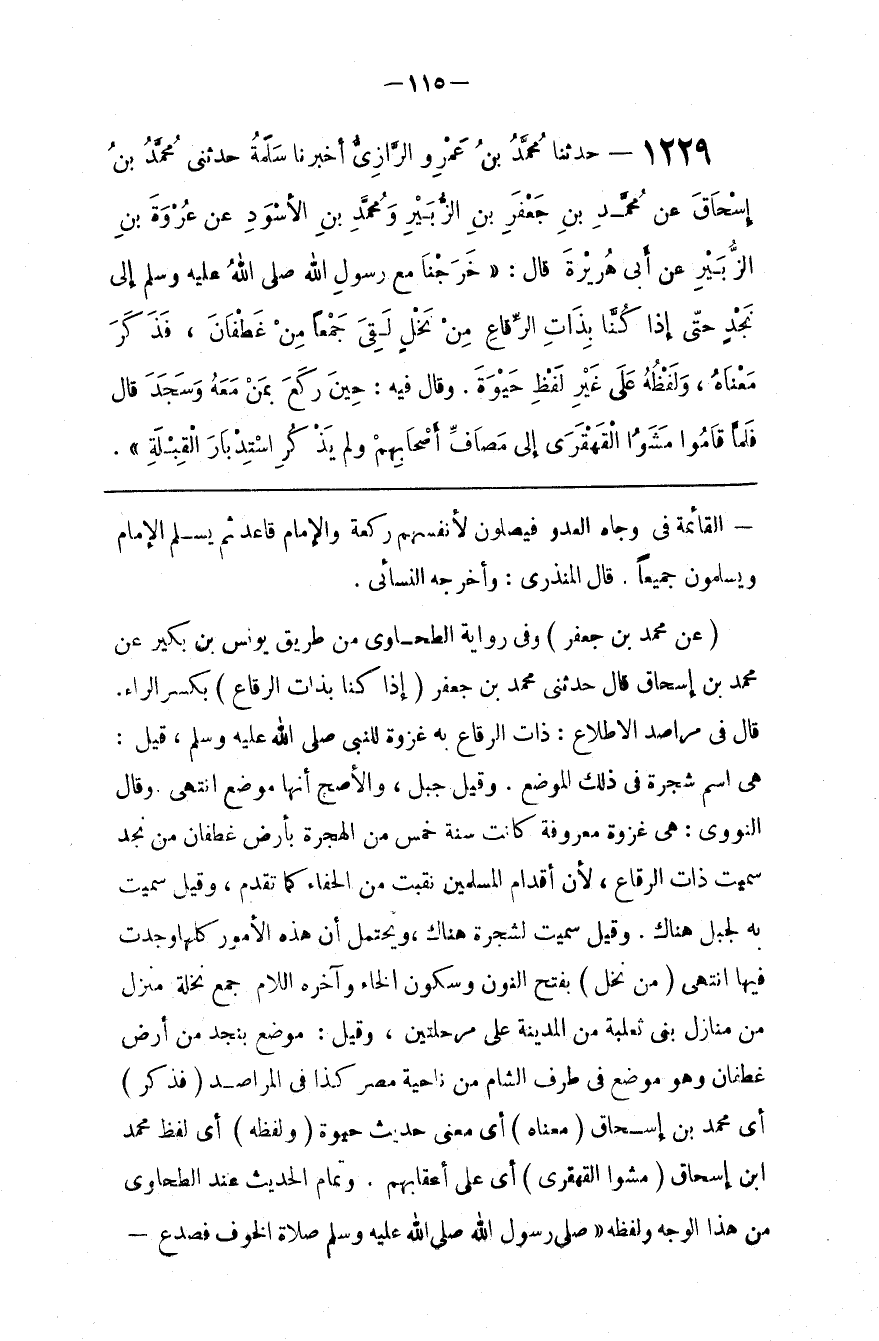 —١١٥—
١٢٢٩ — حدثنا مُحمَّدُ بنُ عَمْرٍو الرَّازِىُّ أخبرنا سَلَمَةُ حدثنى مُحمَّدُ بنُ
إسْحَاقَ عن مُحمَّدِ بنِ جَعْفَرِ بنِ الزُّبَيْرِ وَمُحمَّدِ بنِ الأسْوَدِ عن عُرْوَةَ بنِ
الزُّبَيْرِ عن أَبى هُرِيْرةَ قال : « خَرَجْنَا مع رسولِ اللهِ صلى اللهُ عليه وسلم إلى
نَجْدٍ حتّى إذا كُنَّا بِذَاتِ الرِّقاعِ مِنْ نَخْلٍ لَقِىَ جَمْعاً مِنْ غَطْفَانَ ، فَذَكَرَ
مَعْنَاهُ ، وَلَفْظُهُ عَلَى غَيْرِ لَفْظِ حَيْوَةَ . وقال فيه : حِينَ ركَعَ بمَنْ مَعَهُ وَسَجَدَ قال
فَلمَّا قَامُوا مَشَوُا الْقَهْقَرَى إلى مَصَافِّ أصْحَابِهِمْ ولم يَذْكُرِ اسْتِدْبَارَ الْقِبْلَةِ » .
— القائمة فى وجاه العدو فيصلون لأنفسهم ركعة والإمام قاعد ثم يسلم الإمام
ويسلمون جميعاً . قال المنذرى : وأخرجه النسائى .
( عن محمد بن جعفر ) وفى رواية الطحاوى من طريق يونس بن بكير عن
محمد بن إسحاق قال حدثنى محمد بن جعفر ( إذا كنا بذات الرقاع ) بكسر الراء.
قال فى مراصد الاطلاع : ذات الرقاع به غزوة للنبى صلى الله عليه وسلم ، قيل :
هى اسم شجرة فى ذلك الموضع . وقيل جبل ، والأصح أنها موضع انتهى . وقال
النووى : هى غزوة معروفة كانت سنة خمس من الهجرة بأرض غطفان من نجد
سميت ذات الرقاع ، لأن أقدام المسلمين نقبت من الحفاء كما تقدم ، وقيل سميت
به لجبل هناك . وقيل سميت لشجرة هناك ،ويحتمل أن هذه الأمور كلها وجدت
فيها انتهى ( من نخل ) بفتح النون وسكون الخاء وآخره اللام جمع نخلة منزل
من منازل بنى ثعلبة من المدينة على مرحلتين ، وقيل : موضع بنجد من أرض
غطفان وهو موضع فى طرف الشام من ناحية مصر كذا فى المراصد ( فذكر )
أى محمد بن إسحاق ( معناه ) أى معنى حديث حيوة ( ولفظه ) أى لفظ محمد
ابن إسحاق ( مشوا القهقرى ) أى على أعقابهم . وتمام الحديث عند الطحاوى
من هذا الوجه ولفظه « صلى رسول الله صلى الله عليه وسلم صلاة الخوف فصدع —